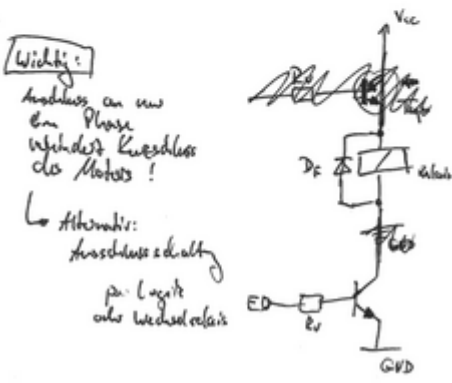 Wichtig:
Anschluss an nur
ein Phase
verhindert Kurzschluss
des Motors !
Alternativ:
Ausschlussschaltung
per Logik
oder Wechselrelais
Vcc
DF
Relais
ED
Rv
GND